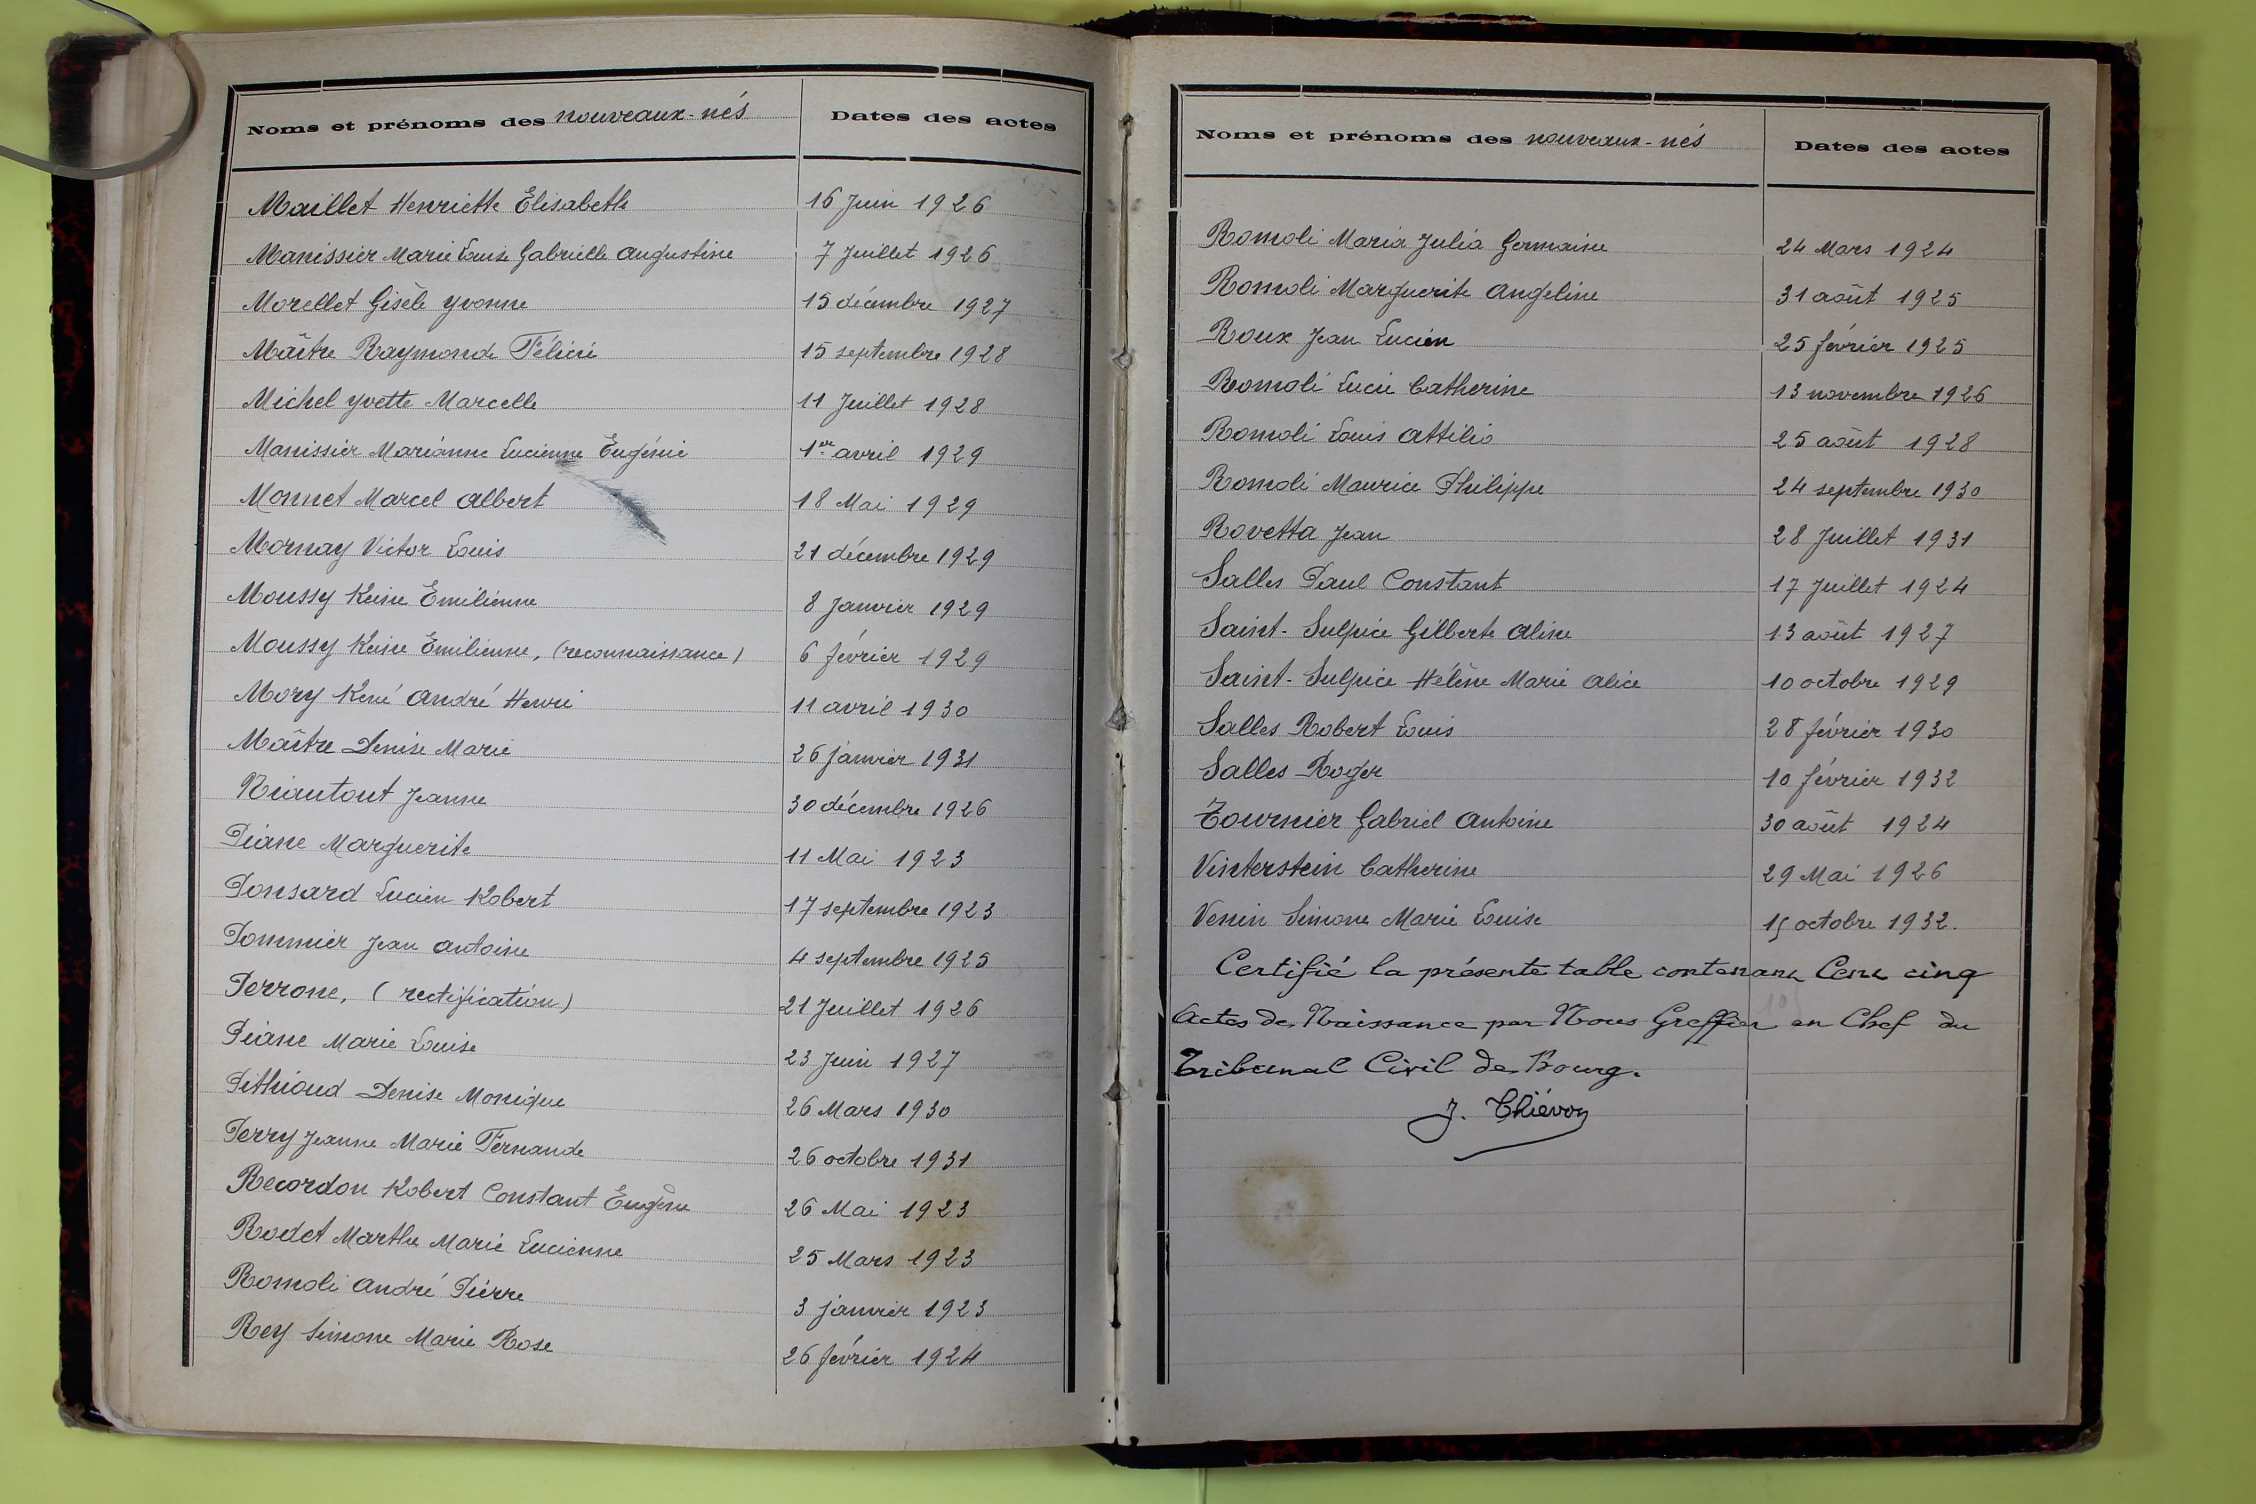 Noms et prénoms des nouveaux-nés Dates des actes
Maillet Henriette Elisabeth 16 Juin 1926
Manissier Marie Louise Gabrielle Augustine 7 Juillet 1926
Morellet Gisèle Yvonne 15 décembre 1927
Maître Raymonde Félicie 15 septembre 1928
Michel Yvette Marcelle 11 Juillet 1928
Manissier Marianne Lucienne Eugénie 1er avril 1929
Monnet Marcel Albert 18 Mai 1929
Mornay Victor Louis 21 décembre 1929
Moussy Reine Emilienne 8 Janvier 1929
Moussy Reine Emilienne, (reconnaissance) 6 février 1929
Mory René André Henri 11 avril 1930
Maître Denise Marie 26 janvier 1931
Niautout Jeanne 30 décembre 1926
Piane Marguerite 11 Mai 1923
Ponsard Lucien Robert 17 septembre 1923
Pommier Jean Antoine 4 septembre 1925
Perrone, (rectification) 21 Juillet 1926
Piane Marie Louise 23 Juin 1927
Pithioud Denise Monique 26 Mars 1930
Perry Jeanne Marie Fernande 26 octobre 1931
Recordon Robert Constant Eugène 26 Mai 1923
Rodet Marthe Marie Lucienne 25 Mars 1923
Romoli André Pierre 3 janvier 1923
Rey Simone Marie Rose 26 février 1924
Noms et prénoms des nouveaux-nés Dates des actes
Romoli Maria Julia Germaine 24 Mars 1924
Romoli Marguerite Angeline 31 août 1925
Roux Jean Lucien 25 février 1925
Romoli Lucie Catherine 13 novembre 1926
Romoli Louis Attilio 25 août 1928
Romoli Maurice Philippe 24 septembre 1930
Rovetta Jean 28 Juillet 1931
Salles Paul Constant 17 Juillet 1924
Saint-Sulpice Gilberte Aline 13 août 1927
Saint-Sulpice Hélène Marie Alice 10 octobre 1929
Salles Robert Louis 28 février 1930
Salles Roger 10 février 1932
Tournier Gabriel Antoine 30 août 1924
Vinterstein Catherine 29 Mai 1926
Venin Simone Marie Louise 15 octobre 1932.
Certifié la présente table contenant Cent cinq
Actes de Naissance par Nous Greffier en Chef du
Tribunal Civil de Bourg.
J. Thiévon